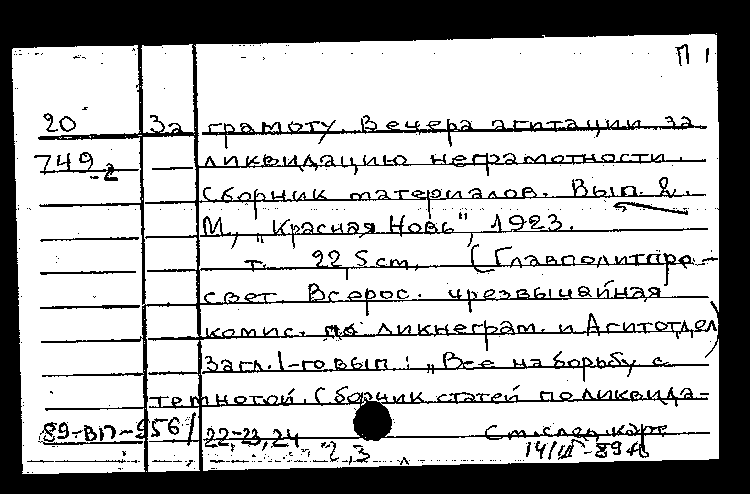 П 1
20 За грамоту. Вечера агитации за
749-2 ликвидацию неграмотности.
Сборник материалов. Вып. 2.
М., „Красная Новь", 1923.
т. 22,5 cm. (Главполитпро-
свет. Всерос. чрезвычайная
комис. по ликнеграм. и Агитотдел)
Загл. 1-го вып.: „Все на борьбу с
темнотой. Сборник статей по ликвида-
89-ВП-956/ 22-23,24 См. след. карт.
2,3 14/III-89